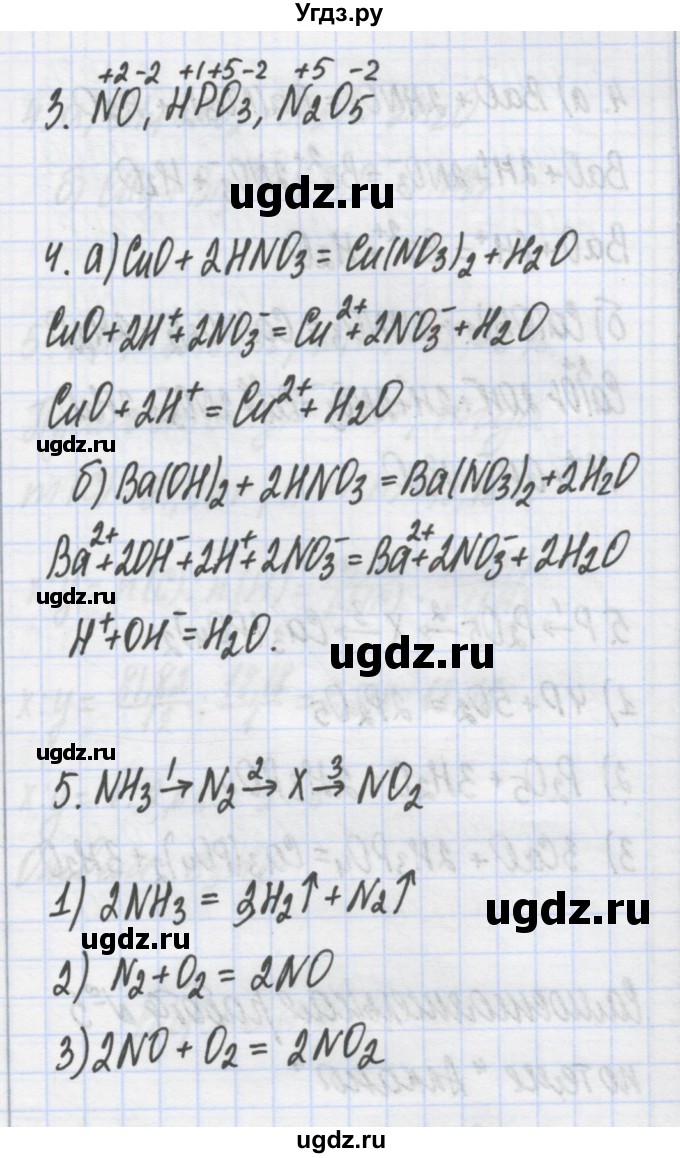 Угдз.ру
+2 -2 +1 +5 -2 +5 -2
3. NO, HPO3, N2O5
ugdz.ru
4. а) CuO + 2HNO3 = Cu(NO3)2 + H2O
CuO + 2H⁺ + 2NO3⁻ = Cu²⁺ + 2NO3⁻ + H2O
CuO + 2H⁺ = Cu²⁺ + H2O
ugdz.ru
б) Ba(OH)2 + 2HNO3 = Ba(NO3)2 + 2H2O
Ba²⁺ + 2OH⁻ + 2H⁺ + 2NO3⁻ = Ba²⁺ + 2NO3⁻ + 2H2O
ugdz.ru
H⁺ + OH⁻ = H2O.
ugdz.ru
ugdz.ru
5. NH3 →1 N2 →2 X →3 NO2
1) 2NH3 = 3H2↑ + N2↑
ugdz.ru
ugdz.ru
2) N2 + O2 = 2NO
3) 2NO + O2 = 2NO2
ugdz.ru
ugdz.ru